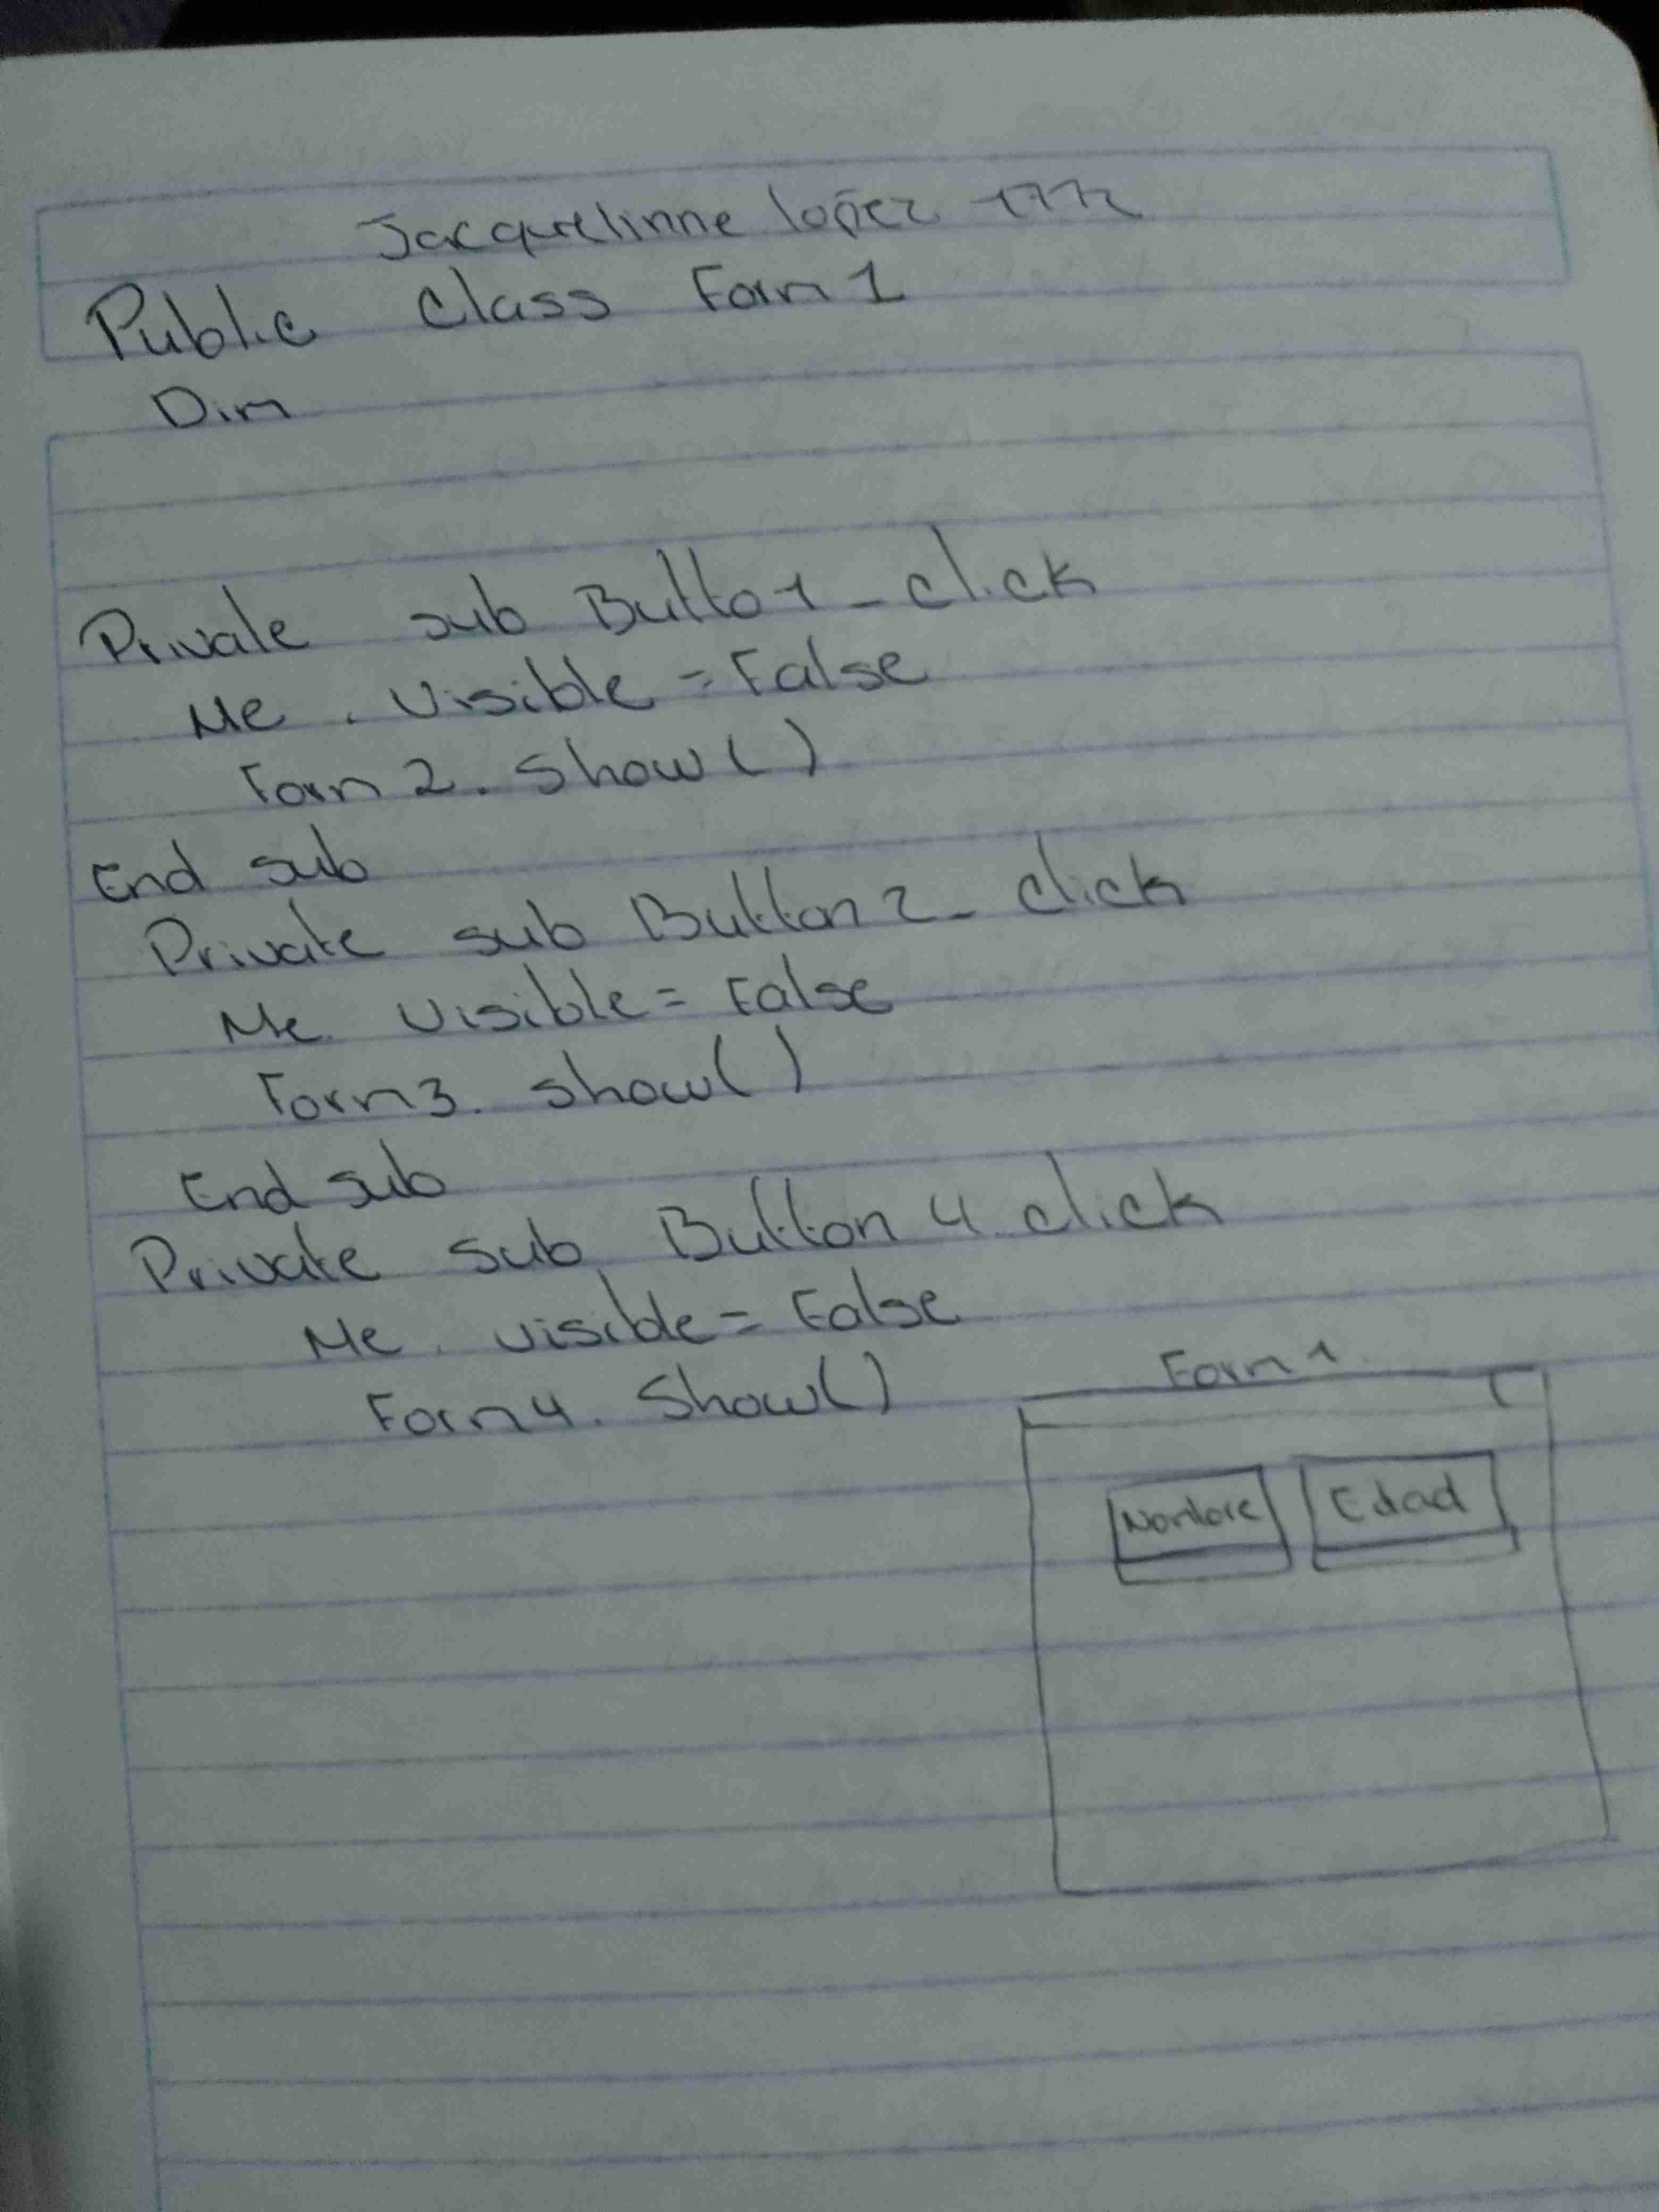 Jacquelinne lopez
Public Class Form 1
Dim
Private sub Butto1_click
Me . Visible = False
Form 2. Show ( )
End sub
Private sub Button 2_ click
Me. Visible = False
Form3. show( )
End sub
Private sub Button 4 click
Me . visible = False
Form4. Show()
Form 1
Nombre Edad